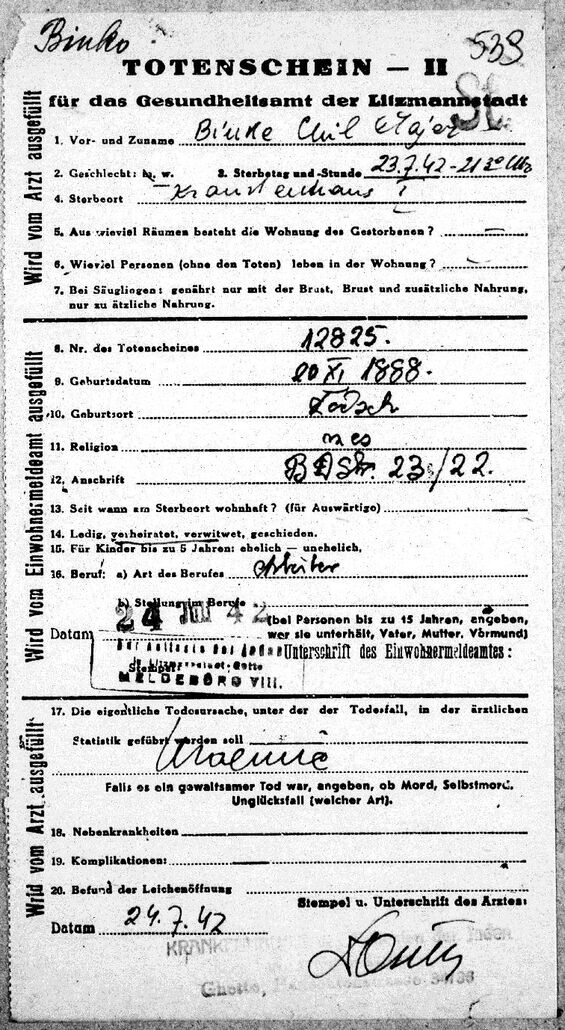 Binko
539
TOTENSCHEIN – II
St.
für das Gesundheitsamt der Litzmannstadt
Wird vom Arzt ausgefüllt
1. Vor- und Zuname Binke Chil Majer
2. Geschlecht: m. w. 3. Sterbetag und -Stunde 23.7.42 - 21 30 Uhr
4. Sterbeort Krankenhaus I
5. Aus wieviel Räumen besteht die Wohnung des Gestorbenen? –
6. Wieviel Personen (ohne den Toten) leben in der Wohnung? –
7. Bei Säuglingen: genährt nur mit der Brust, Brust und zusätzliche Nahrung,
nur zu ätzliche Nahrung.
Wird vom Einwohnermeldeamt ausgefüllt
8. Nr. des Totenscheines 12825.
9. Geburtsdatum 20 XI 1888.
10. Geburtsort Lodsch
11. Religion mos
12. Anschrift 23/22.
13. Seit wann am Sterbeort wohnhaft? (für Auswärtige)
14. Ledig, verheiratet, verwitwet, geschieden.
15. Für Kinder bis zu 5 Jahren: ehelich – unehelich,
16. Beruf: a) Art des Berufes Arbeiter
b) Stellung im Berufe
24 JULI 42
(bei Personen bis zu 15 Jahren, angeben,
Datum wer sie unterhält, Vater, Mutter, Vormund)
Der Aelteste der Juden
Unterschrift des Einwohnermeldeamtes:
Stempel
in Litzmannstadt-Getto
MELDEBÜRO VIII.
Wird vom Arzt ausgefüllt
17. Die eigentliche Todesursache, unter der der Todesfall, in der ärztlichen
Statistik geführt werden soll
Uraemie
Falls es ein gewaltsamer Tod war, angeben, ob Mord, Selbstmord,
Unglücksfall (welcher Art).
18. Nebenkrankheiten
19. Komplikationen:
20. Befund der Leichenöffnung
Stempel u. Unterschrift des Arztes:
Datum 24.7.42
der Juden
Ghetto, 34/36